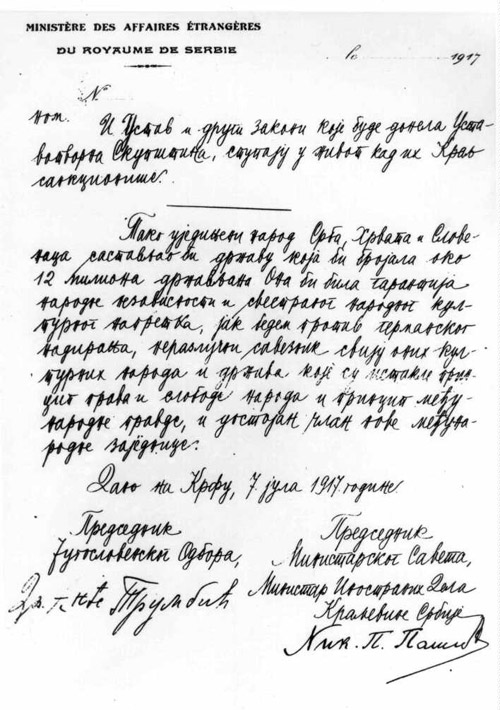 MINISTÈRE DES AFFAIRES ÉTRANGÈRES
DU ROYAUME DE SERBIE
le 1917
№
ном.
И Устав и други закони које буде донела Уста-
вотворна Скупштина, ступају у живот кад их Краљ
санкционише.
Тако уједињени народ Срба, Хрвата и Слове-
наца састављао би државу која би бројала око
12 милиона држављана. Она би била гаранција
народне независности и свестраног народног кул-
турног напретка, јак бедем против германског
надирања, неразлучни савезник свију оних кул-
турних народа и држава које су истакле прин-
цип права и слободе народа и принцип међу-
народне правде, и достојан члан нове међуна-
родне заједнице.
Дано на Крфу, 7. јула 1917. године.
Председник
Југословенског Одбора,
Др. Анте Трумбић
Председник
Министарског Савета,
Министар Иностраних Дела
Краљевине Србије
Ник. П. Пашић